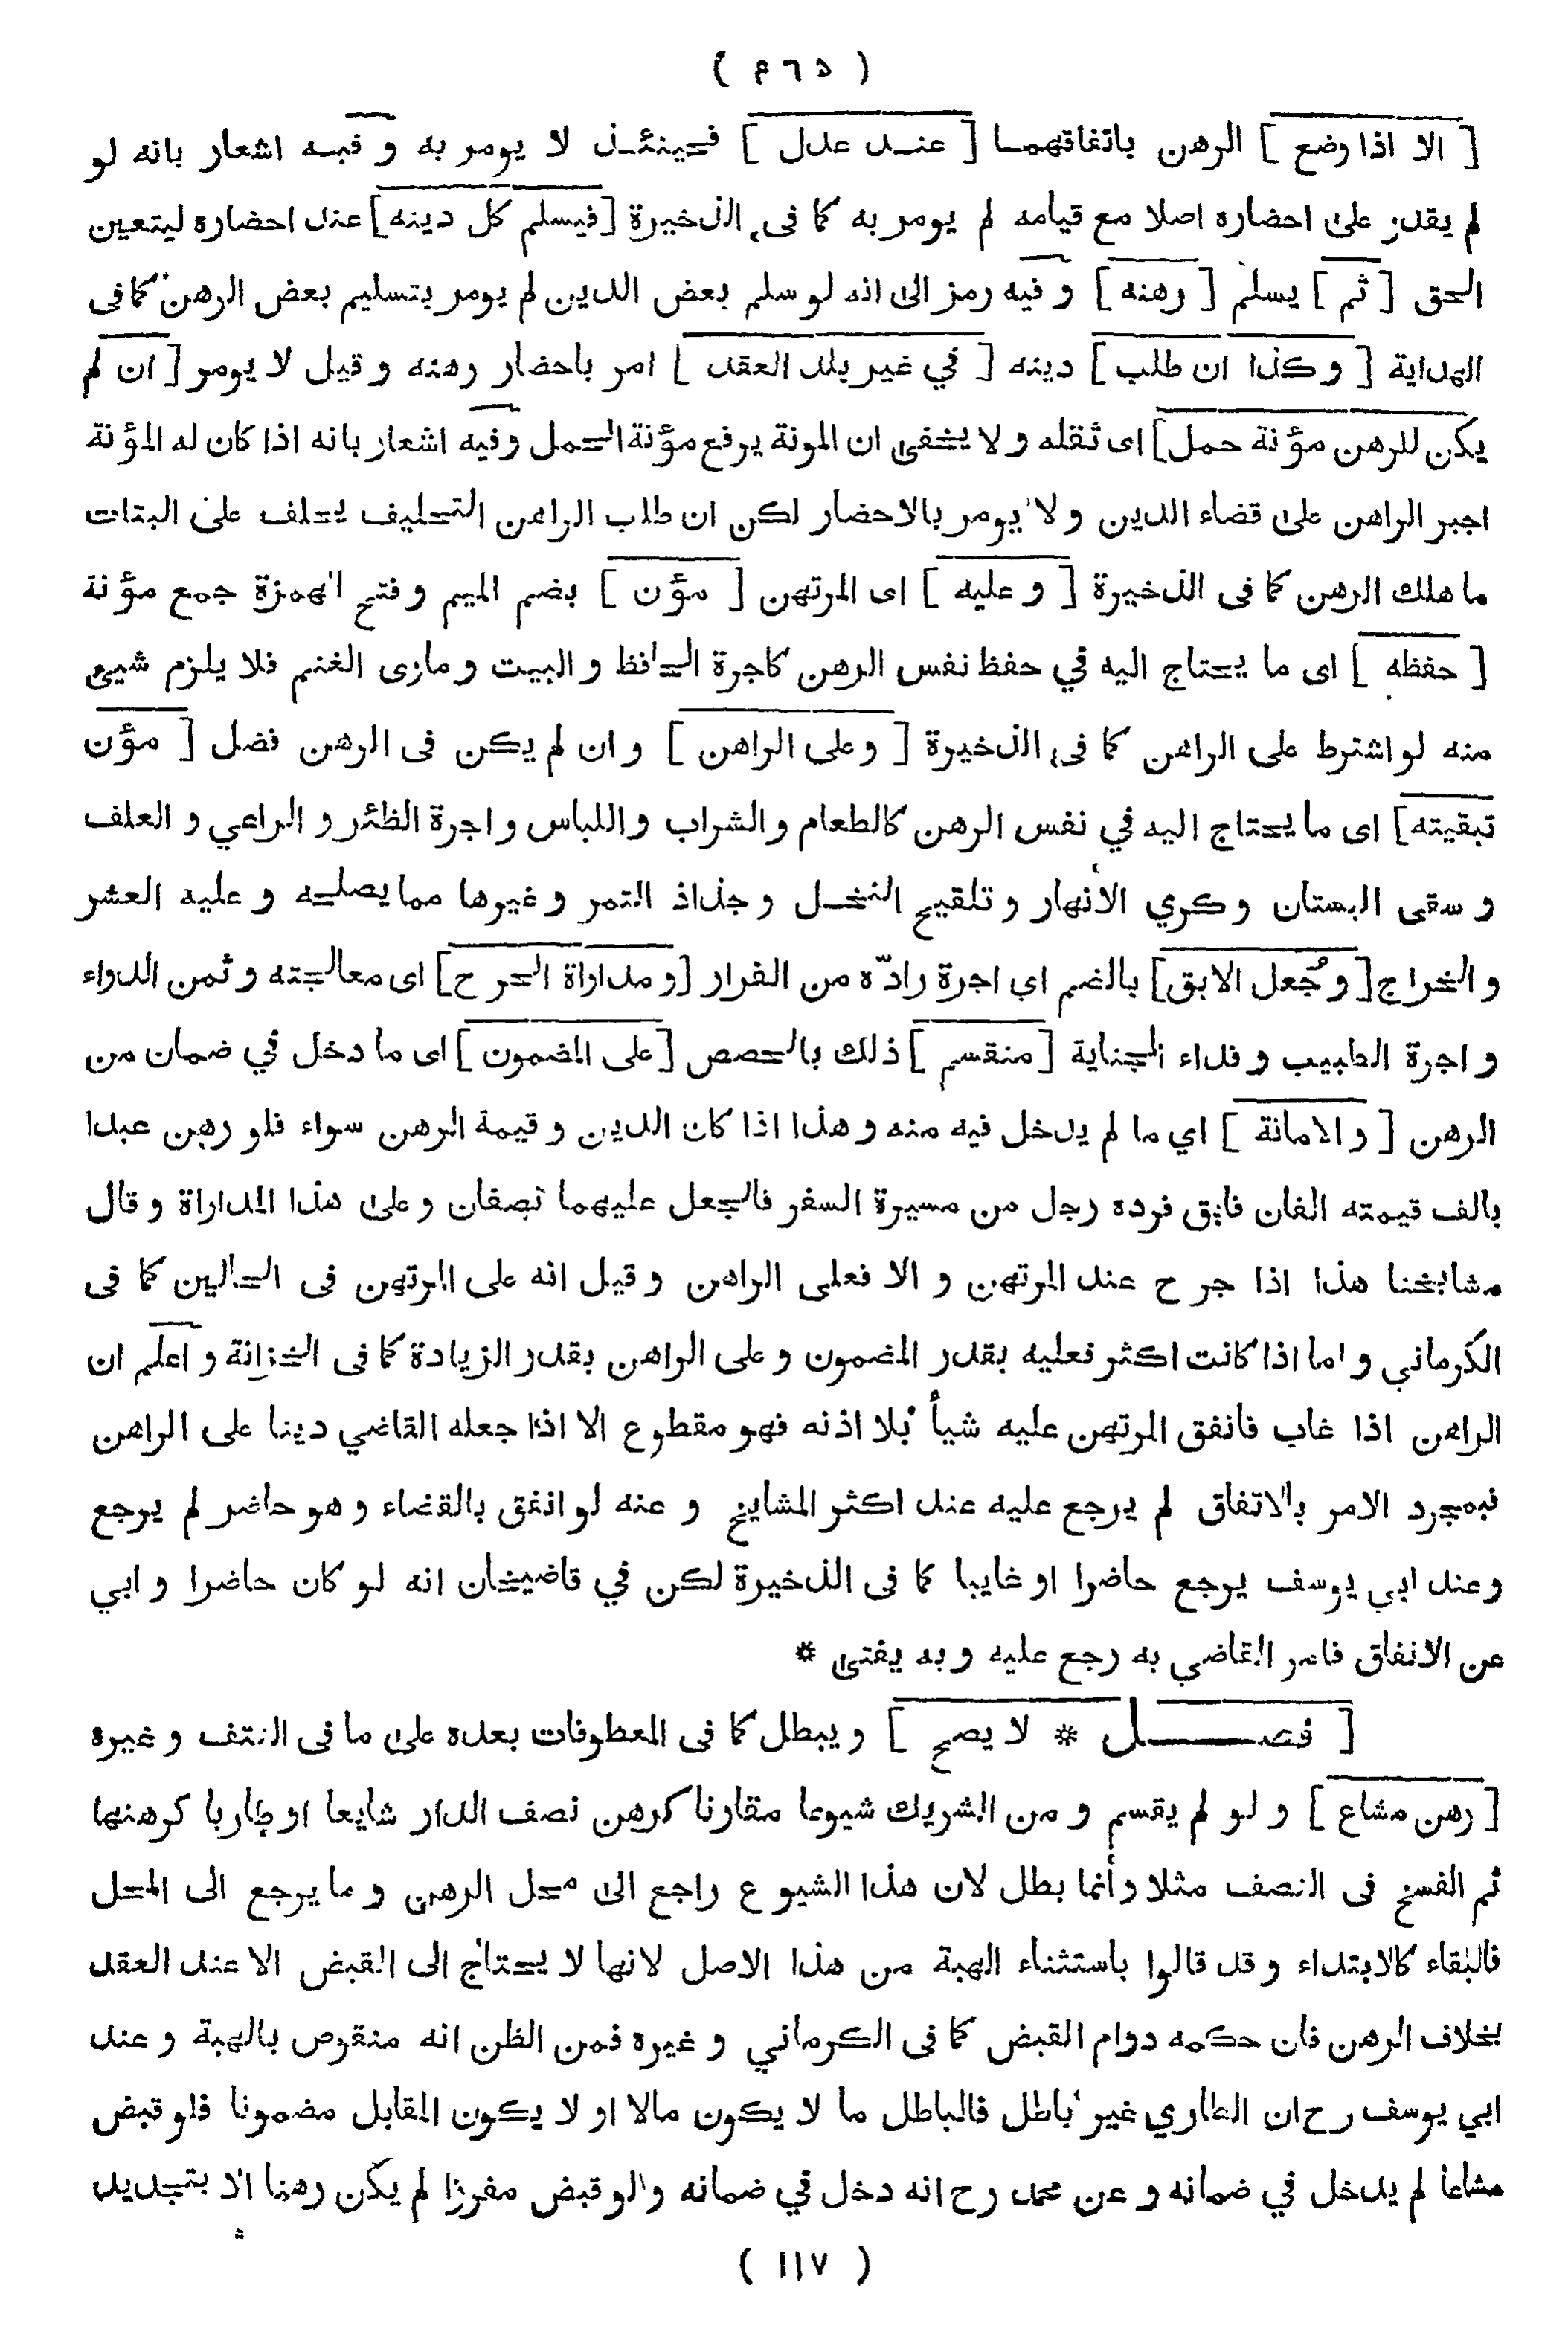 ( ٤٦٥ )
[ الا اذا وضع ] الرهن باتفاقهمـا [ عنـد عدل ] فحينئـذ لا يومر به و فيـه اشعار بانه لو
لم يقدر على احضاره اصلا مع قيامه لم يومر به كما فى الذخيرة [فيسلم كل دينه] عند احضاره ليتعين
الحق [ ثم ] يسلم [ رهنه ] و فيه رمز الى انه لو سلم بعض الدين لم يومر بتسليم بعض الرهن كما فى
الهداية [ و كذا ان طلب ] دينه [ في غير بلد العقد ] امر باحضار رهنه و قيل لا يومر [ ان لم
يكن للرهن مؤنة حمل] اى ثقله و لا يخفى ان المونة يرفع مؤنة الحمل وفيه اشعار بانه اذا كان له المؤنة
اجبر الراهن على قضاء الدين و لا يومر بالاحضار لكن ان طلب الراهن التحليف يحلف على البتات
ما هلك الرهن كما فى الذخيرة [ و عليه ] اى المرتهن [ مؤن ] بضم الميم و فتح الهمزة جمع مؤنة
[ حفظه ] اى ما يحتاج اليه في حفظ نفس الرهن كاجرة الحافظ و البيت و ماوى الغنم فلا يلزم شيئ
منه لو اشترط على الراهن كما فى الذخيرة [ و على الراهن ] و ان لم يكن فى الرهن فضل [ مؤن
تبقيته] اى ما يحتاج اليه في نفس الرهن كالطعام و الشراب و اللباس و اجرة الظئر و الراعي و العلف
و سقى البستان و كري الأنهار و تلقيح النخـل و جذاذ التمر و غيرها مما يصلحه و عليه العشر
و الخراج [و جُعل الابق] بالضم اي اجرة رادّه من الفرار [و مداراة الجرح] اى معالجته و ثمن الدواء
و اجرة الطبيب و فداء الجناية [ منقسم ] ذلك بالحصص [على المضمون] اى ما دخل في ضمان من
الرهن [ و الامانة ] اي ما لم يدخل فيه منه و هذا اذا كان الدين و قيمة الرهن سواء فلو رهن عبدا
بالف قيمته الفان فابق فرده رجل من مسيرة السفر فالجعل عليهما نصفان و على هذا المداراة و قال
مشايخنا هذا اذا جرح عند المرتهن و الا فعلى الراهن و قيل انه على المرتهن فى الحالين كما فى
الكرماني و اما اذا كانت اكثر فعليه بقدر المضمون و على الراهن بقدر الزيادة كما فى الخزانة و اعلم ان
الراهن اذا غاب فانفق المرتهن عليه شيأ بلا اذنه فهو مقطوع الا اذا جعله القاضي دينا على الراهن
فبمجرد الامر بالاتفاق لم يرجع عليه عند اكثر المشايخ و عنه لو انفق بالقضاء و هو حاضر لم يرجع
و عند ابي يوسف يرجع حاضرا او غايبا كما فى الذخيرة لكن في قاضيخان انه لو كان حاضرا و ابي
عن الانفاق فامر القاضي به رجع عليه و به يفتى *
[ فصــــل * لا يصح ] و يبطل كما فى المعطوفات بعده على ما فى النتف و غيره
[ رهن مشاع ] و لو لم يقسم و من الشريك شيوعا مقارنا كرهن نصف الدار شايعا او طاريا كرهنها
ثم الفسخ فى النصف مثلا و أنما بطل لان هذا الشيوع راجع الى محل الرهن و ما يرجع الى المحل
فالبقاء كالابتداء و قد قالوا باستثناء الهبة من هذا الاصل لانها لا يحتاج الى القبض الا عند العقد
بخلاف الرهن فان حكمه دوام القبض كما فى الكرماني و غيره فمن الظن انه منقوص بالهبة و عند
ابي يوسف رح ان الطاري غير باطل فالباطل ما لا يكون مالا او لا يكون المقابل مضمونا فلو قبض
مشاعا لم يدخل في ضمانه و عن محمد رح انه دخل في ضمانه و لو قبض مفرزا لم يكن رهنا الا بتجديد
( ١١٧ )